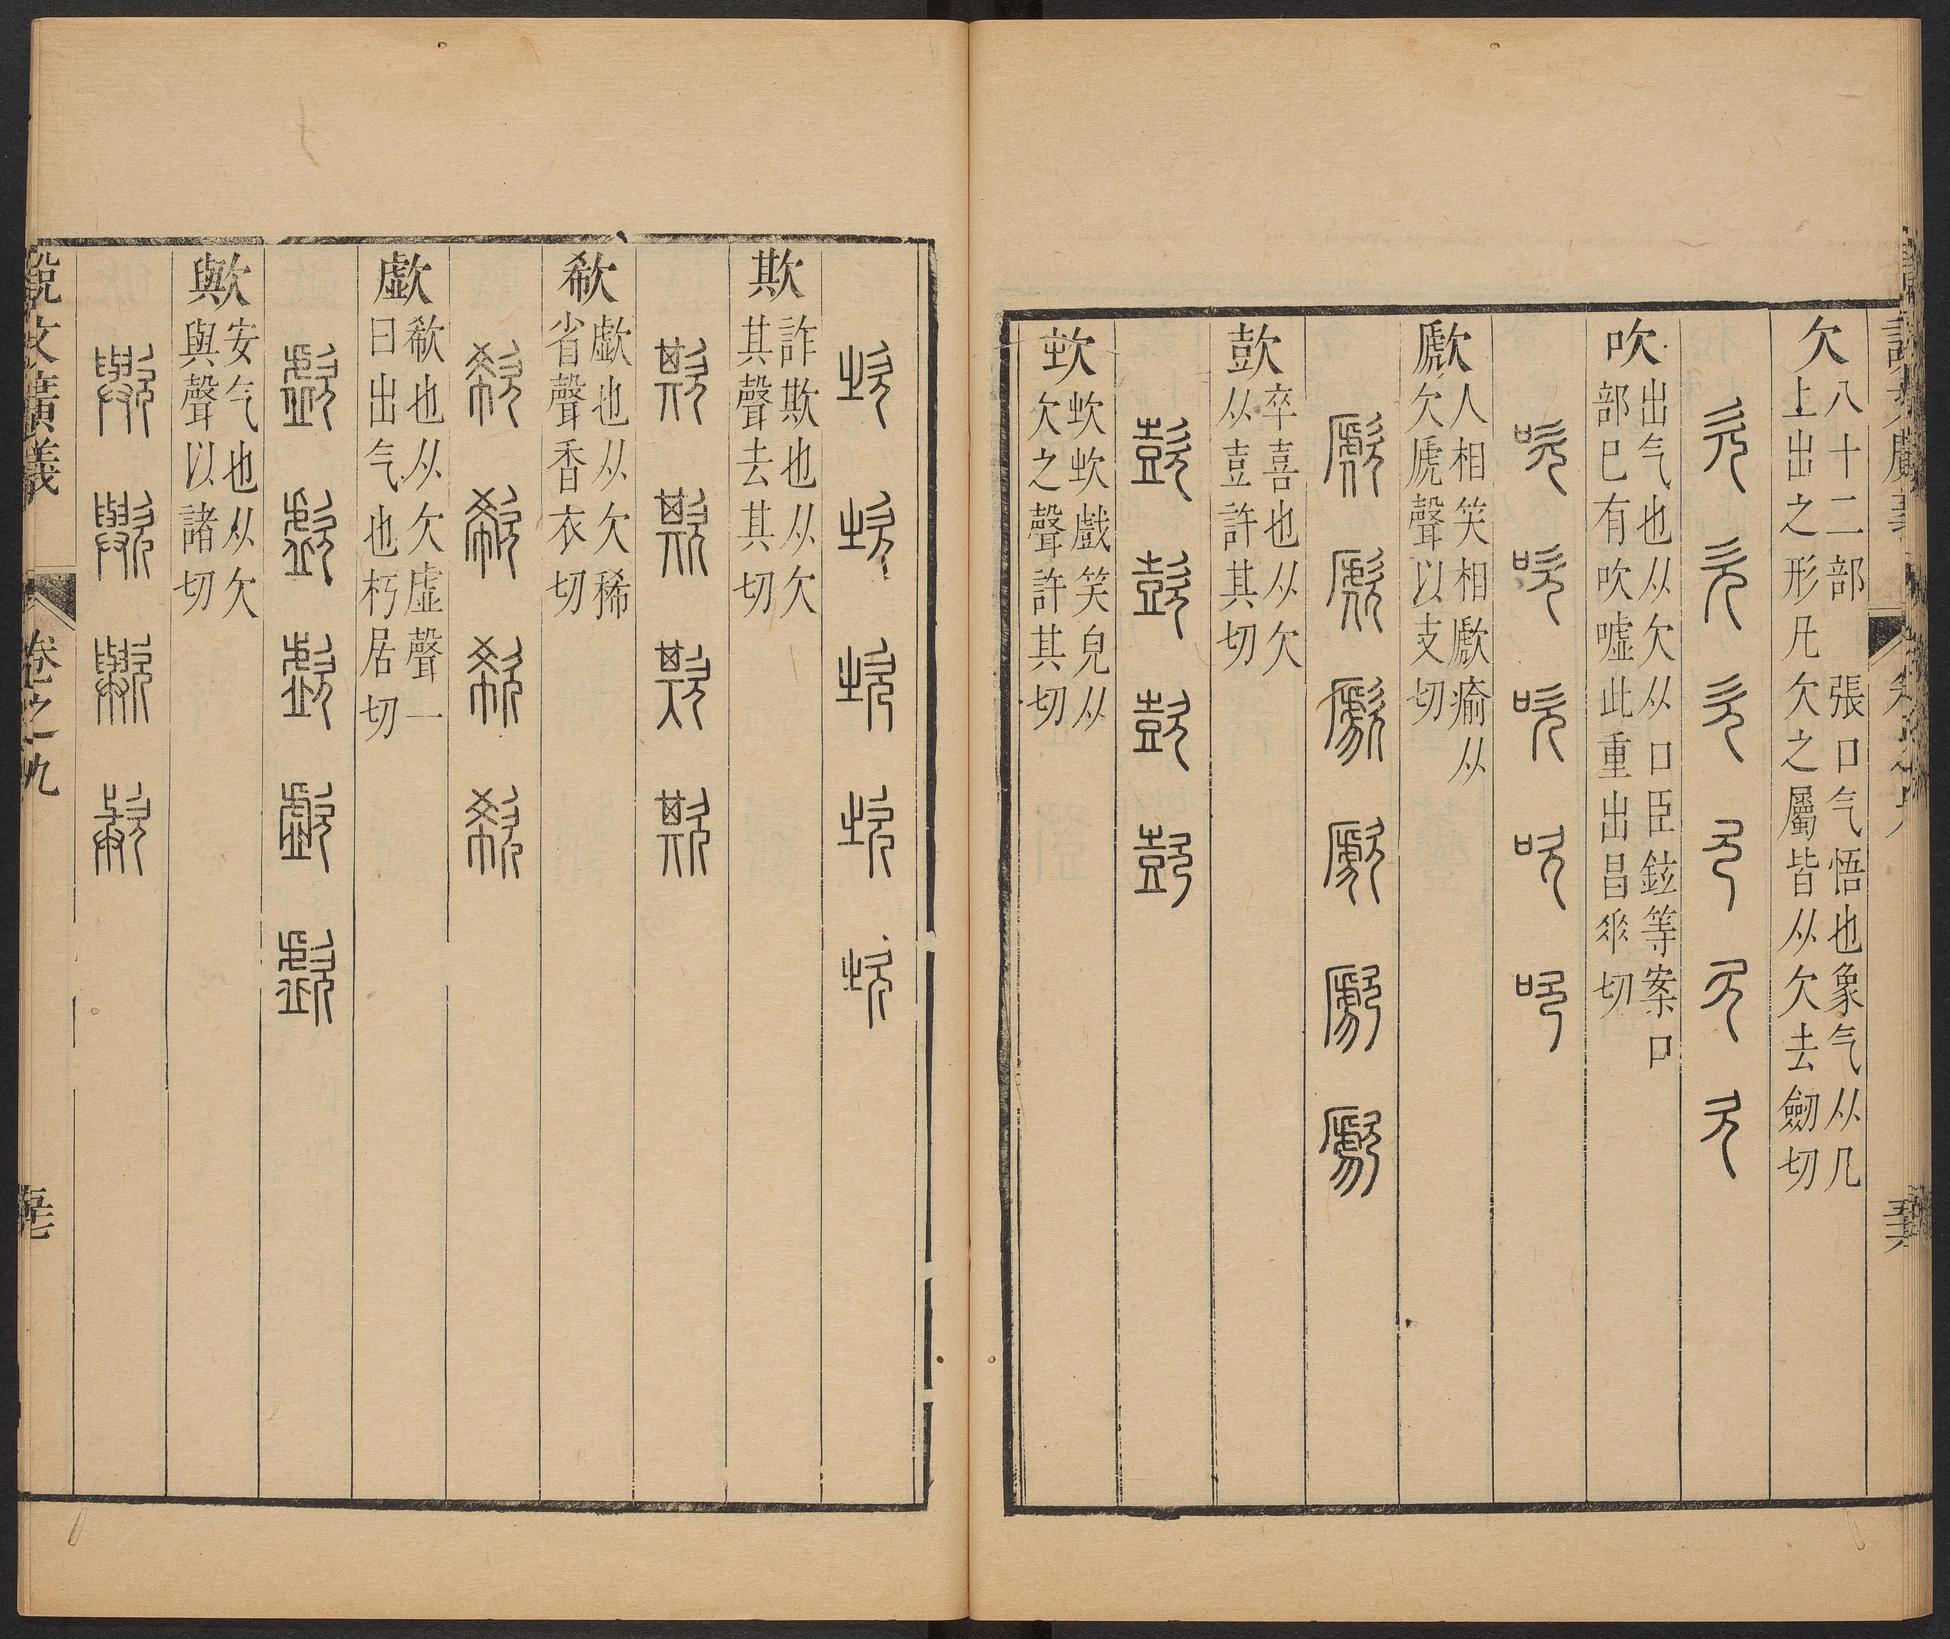 欠 八十二部 張口气悟也象气从几
上出之形凡欠之屬皆从欠去劒切
吹 出气也从欠从口臣鉉等案口
部已有吹噓此重出昌𠂹切
歋 人相笑相歋瘉从
欠虒聲以支切
歖 卒喜也从欠
从壴許其切
㰞 㰞㰞戲笑皃从
欠之聲許其切
欺 詐欺也从欠
其聲去其切
欷 歔也从欠稀
省聲香衣切
歔 欷也从欠虛聲一
曰出气也朽居切
歟 安气也从欠
與聲以諸切
說文廣義 卷之九